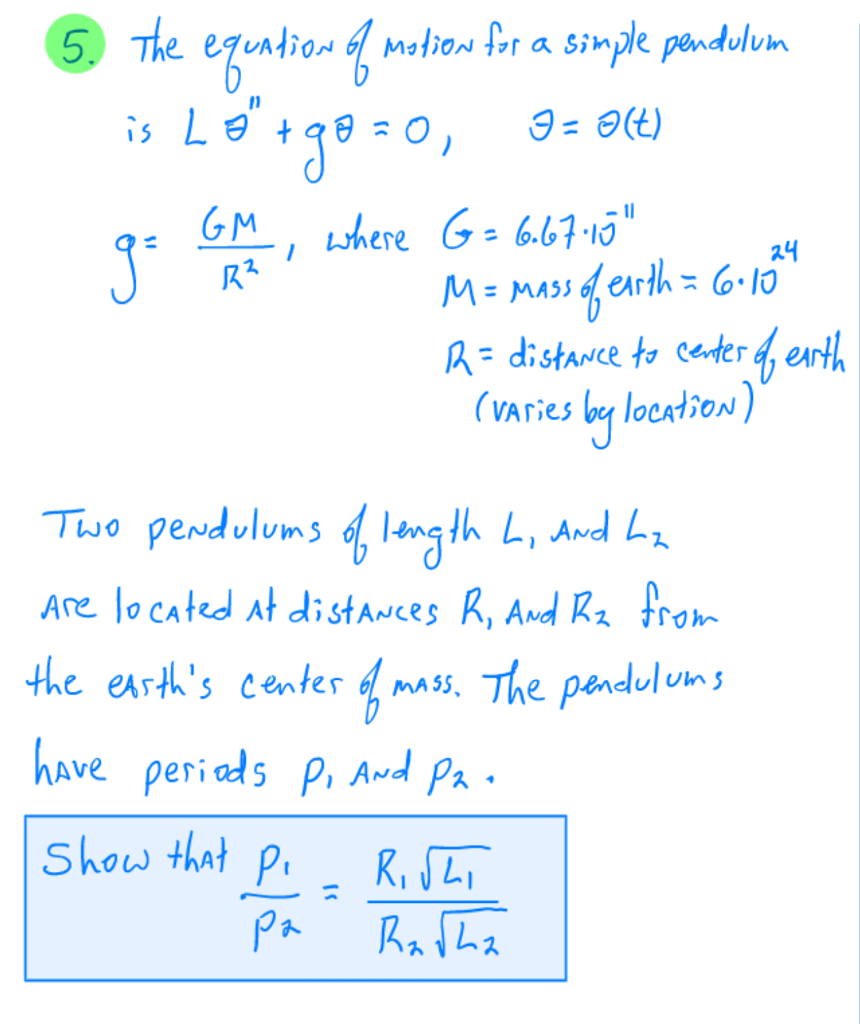 5. The equation of motion for a simple pendulum
is Lθ'' + gθ = 0, θ = θ(t)
g = GM/R², where G = 6.67·10⁻¹¹
M = mass of earth = 6·10²⁴
R = distance to center of earth
(varies by location)
Two pendulums of length L₁ and L₂
are located at distances R₁ and R₂ from
the earth's center of mass. The pendulums
have periods p₁ and p₂.
Show that p₁/p₂ = R₁√L₁ / R₂√L₂